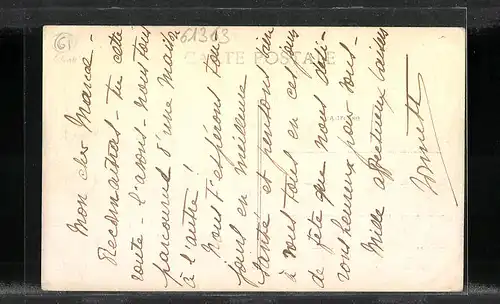 61313
61
CARTE POSTALE
Mon cher Marcel -
Reconnaitras - tu cette
route - l'avons - nous tous
parcourue d'une maison
à l'autre !
Nous t'espérons tou-
jours en meilleure
santé et pensons bien
à vous tous en ces jours
de fête que nous dési-
rons heureux pour vous -
Mille affectueux baisers